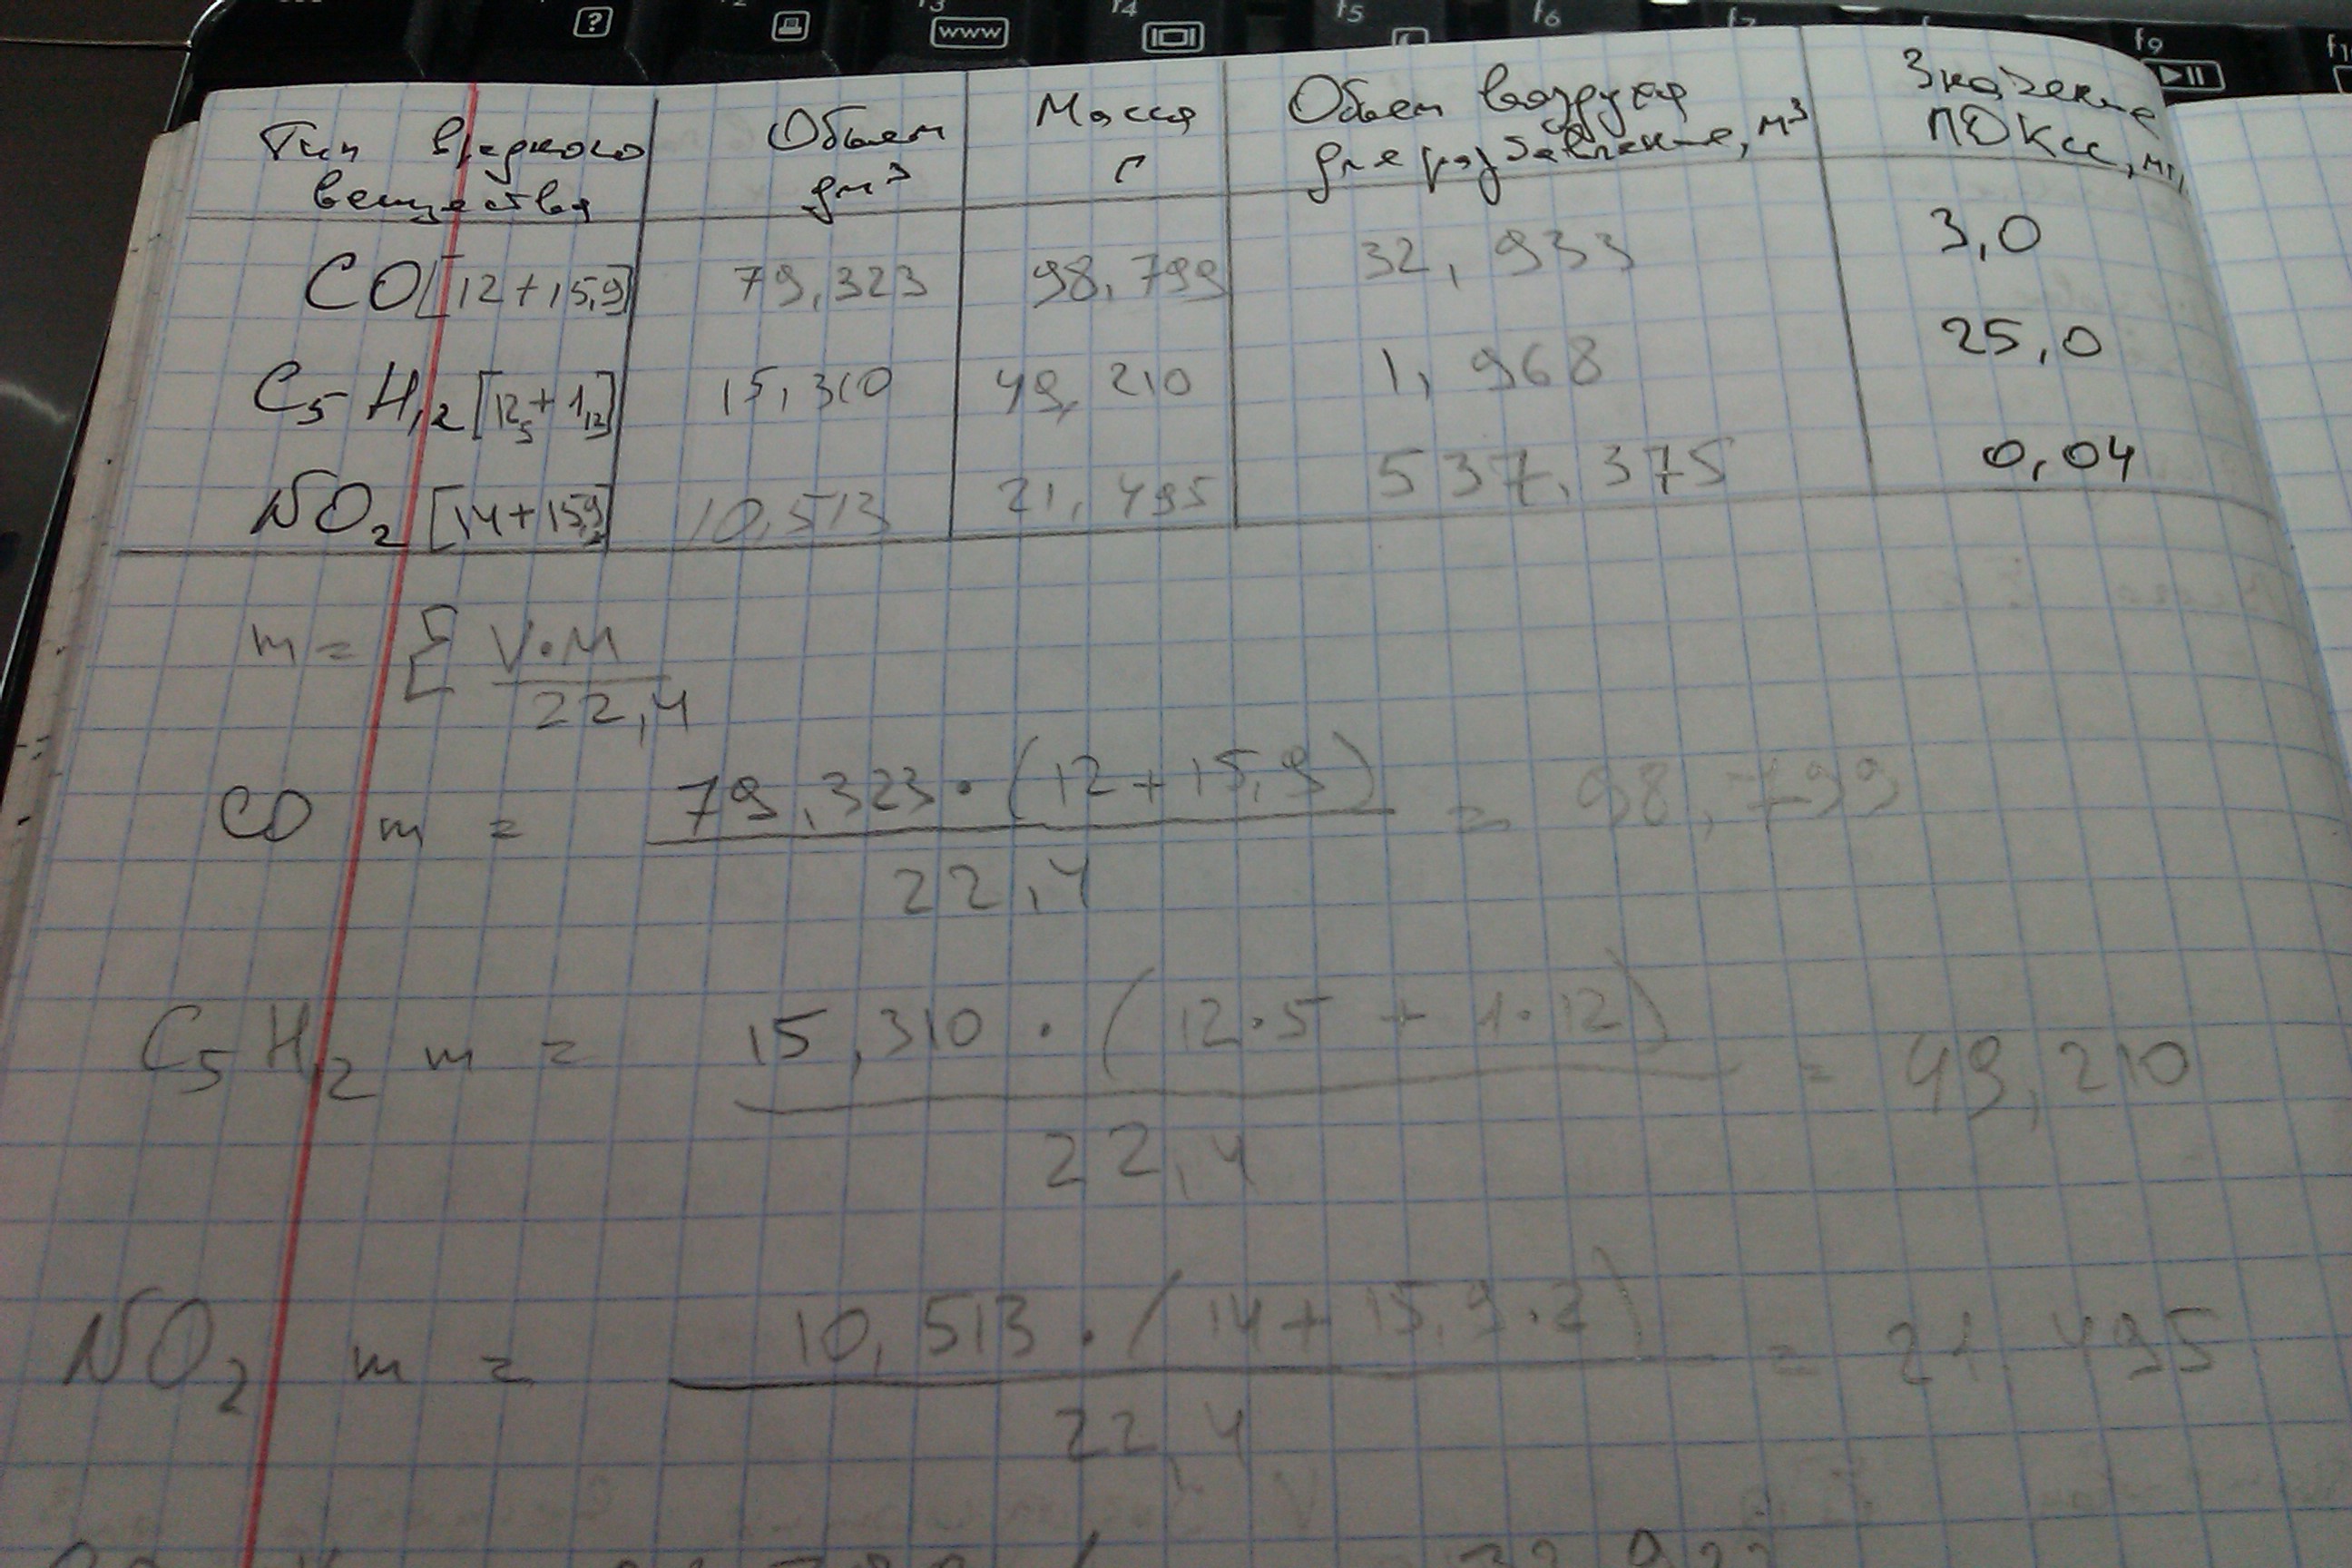 f3 f4 f5 f6 f9
? www
Тип вредного вещества | Объем дм³ | Масса г | Объем воздуха для разбавления, м³ | Значение ПДКсс, мг/
CO [12+15,9] | 79,323 | 98,799 | 32,933 | 3,0
C₅H₁₂ [12₅+1₁₂] | 15,310 | 49,210 | 1,968 | 25,0
NO₂ [14+15,9₂] | 10,513 | 21,495 | 537,375 | 0,04
m = Σ V·M / 22,4
CO m = 79,323·(12+15,9) / 22,4 = 98,799
C₅H₁₂ m = 15,310·(12·5+1·12) / 22,4 = 49,210
NO₂ m = 10,513·(14+15,9·2) / 22,4 = 21,495